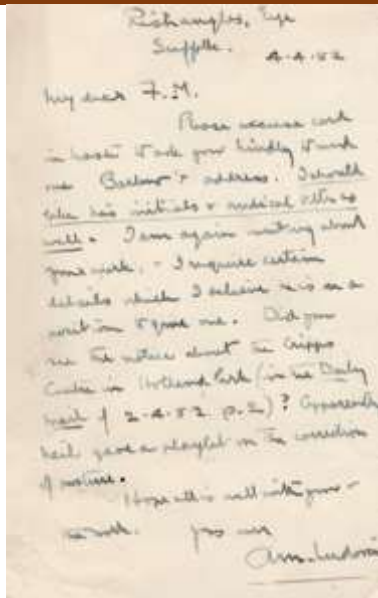 Rishangles, Eye
Suffolk. 4-4-52
My dear F.M.
Please excuse card
in haste to ask you kindly to send
me Barlow's address. I should
like his initials & medical titles as
well. I am again writing about
your work, - I require certain
details which I believe he is in a
position to give me. Did you
see the notice about the Cripps
Centre in Holland Park (in the Daily
Mail of 2-4-52 p.2)? Apparently
gave a playlet on the correction
of posture.
Hope all is well with you &
the work. Yrs ever
A.M. Ludovici